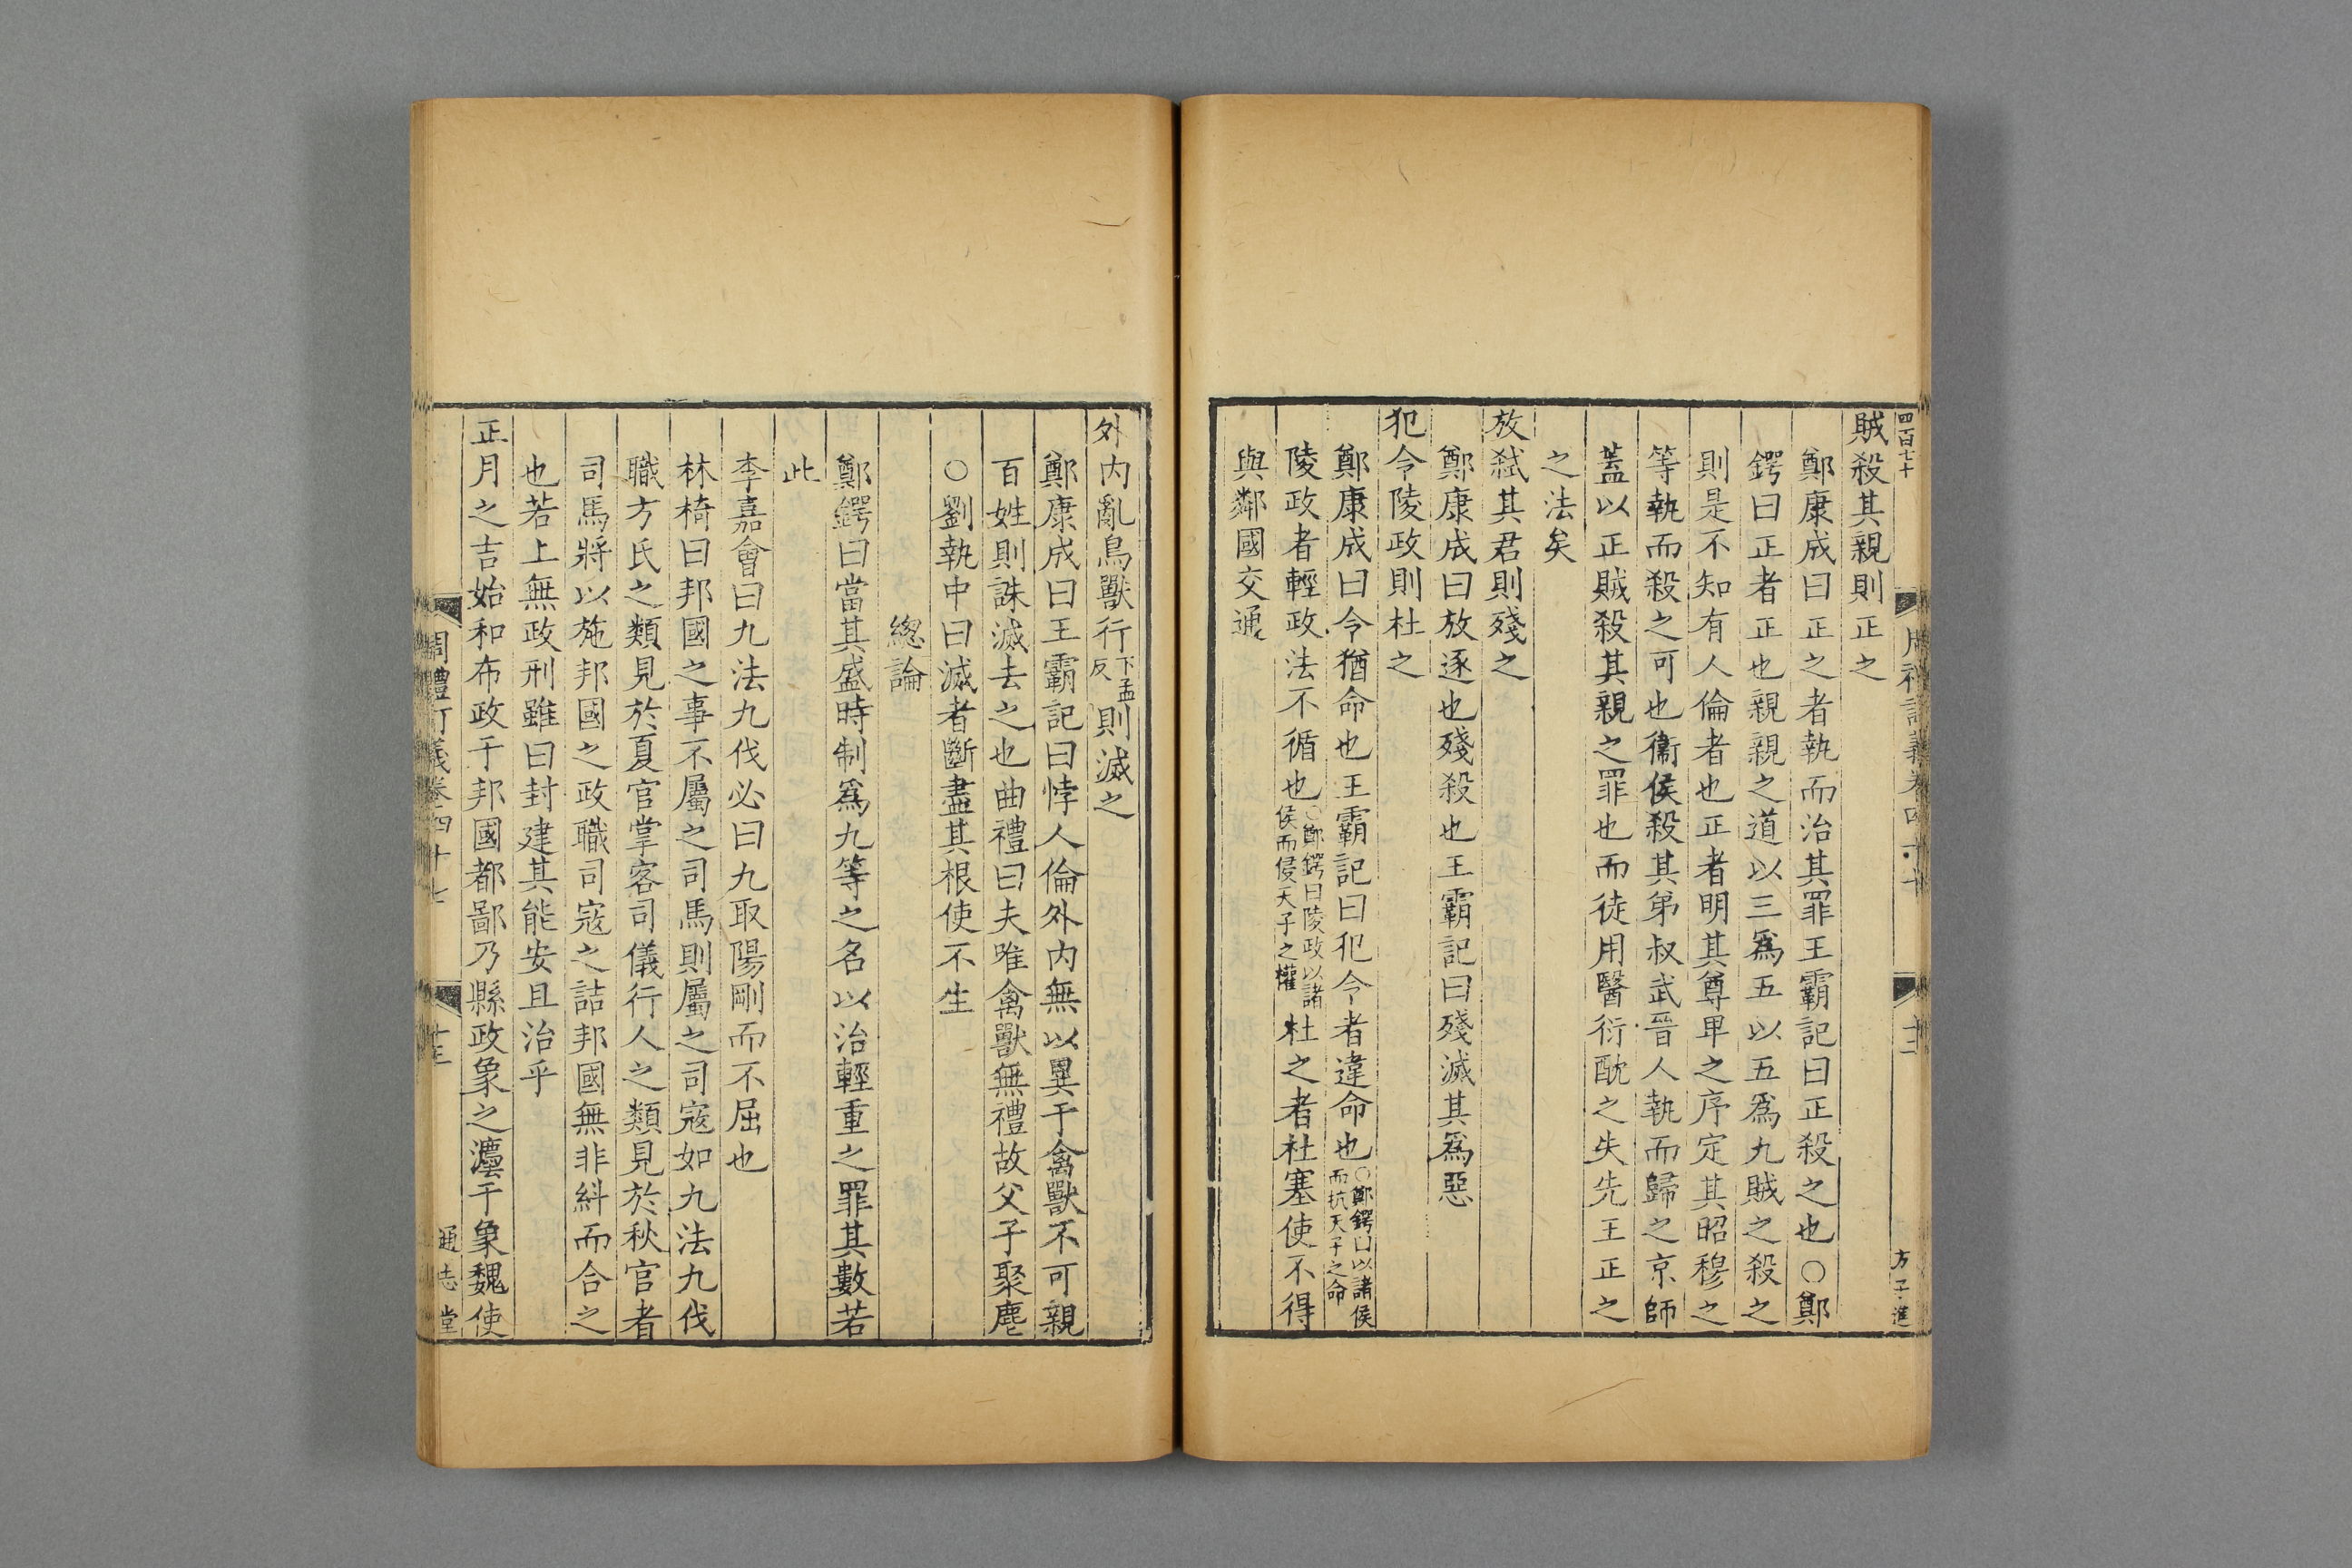 四百七十
賊殺其親則正之
鄭康成曰正之者執而治其罪王霸記曰正殺之也○鄭
鍔曰正者正也親親之道以三爲五以五爲九賊之殺之
則是不知有人倫者也正者明其尊卑之序定其昭穆之
等執而殺之可也衞侯殺其弟叔武晉人執而歸之京師
蓋以正賊殺其親之罪也而徒用醫衍酖之失先王正之
之法矣
放弑其君則殘之
鄭康成曰放逐也殘殺也王霸記曰殘滅其爲惡
犯令陵政則杜之
鄭康成曰令猶命也王霸記曰犯令者違命也○鄭鍔曰以諸侯而抗天子之命
陵政者輕政法不循也○鄭鍔曰陵政以諸侯而侵天子之權杜之者杜塞使不得
與鄰國交通
方子進
外內亂鳥獸行下孟反則滅之
鄭康成曰王霸記曰悖人倫外內無以異于禽獸不可親
百姓則誅滅去之也曲禮曰夫唯禽獸無禮故父子聚麀
○劉執中曰滅者斷盡其根使不生
總論
鄭鍔曰當其盛時制爲九等之名以治輕重之罪其數若
此
李嘉會曰九法九伐必曰九取陽剛而不屈也
林椅曰邦國之事不屬之司馬則屬之司寇如九法九伐
職方氏之類見於夏官掌客司儀行人之類見於秋官者
司馬將以施邦國之政職司寇之詰邦國無非糾而合之
也若上無政刑雖曰封建其能安且治乎
正月之吉始和布政于邦國都鄙乃縣政象之灋于象魏使
周禮訂義卷四十七
十三
通志堂